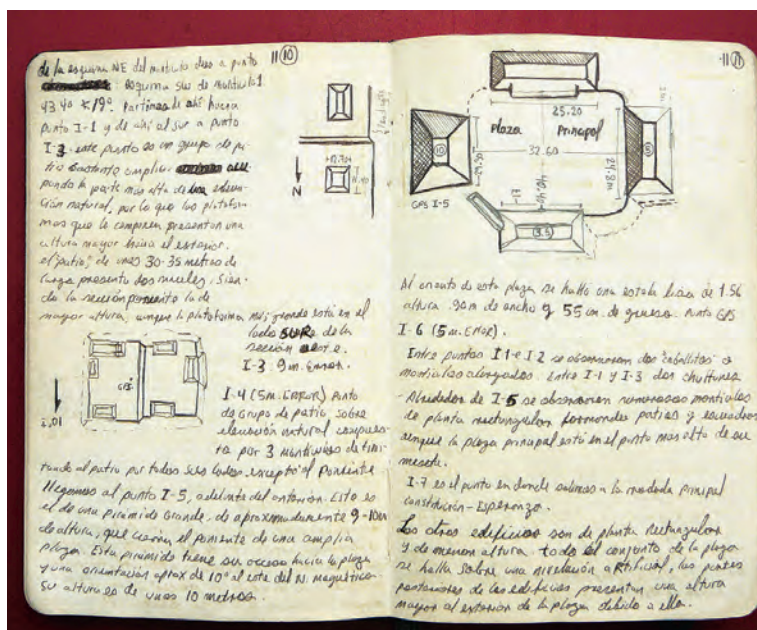 11 10
de la esquina NE del montículo dies a punto
esquina sur de montículo 1.
43.40 19°. Partimos de ahí hacia
punto I-1 y de ahí al sur a punto
I-3. este punto es un grupo de pa-
tio bastante amplio
pando la parte mas alta de una eleva-
ción natural, por lo que las platafor-
mas que lo componen presentan una
altura mayor hacia el exterior.
el "patio", de unos 30-35 metros de
largo presenta dos niveles, sien-
do la sección poniente la de
mayor altura, aunque la plataforma mas grande está en el
lado SUR de la
sección oeste.
I-3. 9 m. Error.
N
GPS
I-4 (5m. ERROR) Punto
de Grupo de patio sobre
elevación natural compues-
to por 3 montículos delimi-
tando al patio por todos sus lados excepto al Poniente
Llegamos al punto I-5, adelante del anterior. Esta es
el de una pirámide Grande, de aproximadamente 9-10m
de altura, que cierra el poniente de una amplia
plaza. Esta pirámide tiene su acceso hacia la plaza
y una orientación aprox de 10° al este del N. magnético.
Su altura es de unos 10 metros.
11 11
25.20
Plaza Principal
10
32.60
24.8m
40.40
GPS I-5
(3.5)
Al oriente de esta plaza se halló una estela lisa de 1.56
altura. 90m de ancho y 55 cm. de grueso. Punto GPS
I-6 (5 m. Error).
Entre puntos I 1 e I 2 se observaron dos "caballitos" o
montículos alargados. Entre I-1 y I-3 dos chultunes
- Alrededor de I-5 se observaron numerosos montículos
de planta rectangular formando patios y
aunque la plaza principal está en el punto mas alto de su
meseta.
I-7 es el punto en donde salimos a la Principal
Constitución - Esperanza.
Los otros edificios son de planta Rectangular
y de menor altura. todo el conjunto de la plaza
se halla sobre una nivelación artificial, las partes
posteriores de los edificios presentan una altura
mayor al exterior de la plaza debido a ello.